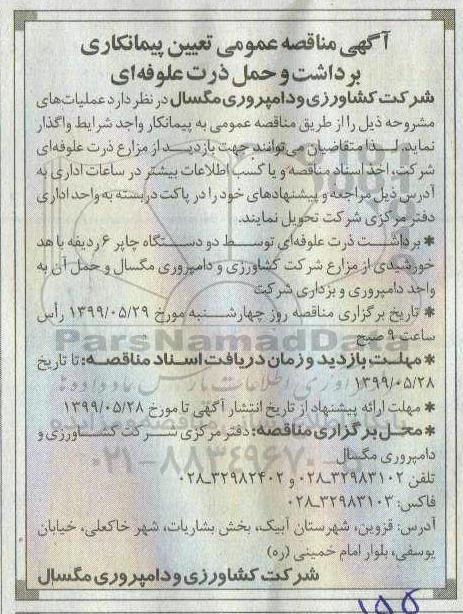 آگهی مناقصه عمومی تعیین پیمانکاری
برداشت و حمل ذرت علوفه‌ای
شرکت کشاورزی و دامپروری مگسال در نظر دارد عملیات‌های
مشروحه ذیل را از طریق مناقصه عمومی به پیمانکار واجد شرایط واگذار
نماید. لـذا متقاضیان می‌توانند جهت بازدیـد از مزارع ذرت علوفه‌ای
شرکت، اخذ اسناد مناقصه و یا کسب اطلاعات بیشتر در ساعات اداری به
آدرس ذیل مراجعه و پیشنهادهای خود را در پاکت دربسته به واحد اداری
دفتر مرکزی شرکت تحویل نمایند.
* برداشـت ذرت علوفه‌ای توسط دو دستـگاه چاپر ۶ ردیفه با هد
خورشیدی از مزارع شرکت کشاورزی و دامپروری مگسال و حمل آن به
واحد دامپروری و بزداری شرکت
* تاریخ برگزاری مناقصه روز چهارشـنبه مورخ ۱۳۹۹/۰۵/۲۹ رأس
ساعت ۹ صبح
* مهلـت بازدید و زمان دریافت اسناد مناقصـه: تا تاریخ
۱۳۹۹/۰۵/۲۸
* مهلت ارائه پیشنهاد از تاریخ انتشار آگهی تا مورخ ۱۳۹۹/۰۵/۲۸
* محـل برگزاری مناقصه: دفتر مرکزی شرکت کشـاورزی و
دامپروری مگسال
تلفن ۳۲۹۸۳۱۰۲-۰۲۸ و ۳۲۹۸۲۴۰۲-۰۲۸
فاکس: ۳۲۹۸۳۱۰۳-۰۲۸
آدرس: قزوین، شهرستان آبیک، بخش بشاریات، شهر خاکعلی، خیابان
یوسفی، بلوار امام خمینی (ره)
شرکت کشاورزی و دامپروری مگسال
ParsNamadData
۰۲۱-۸۸۳۴۹۶۷۰